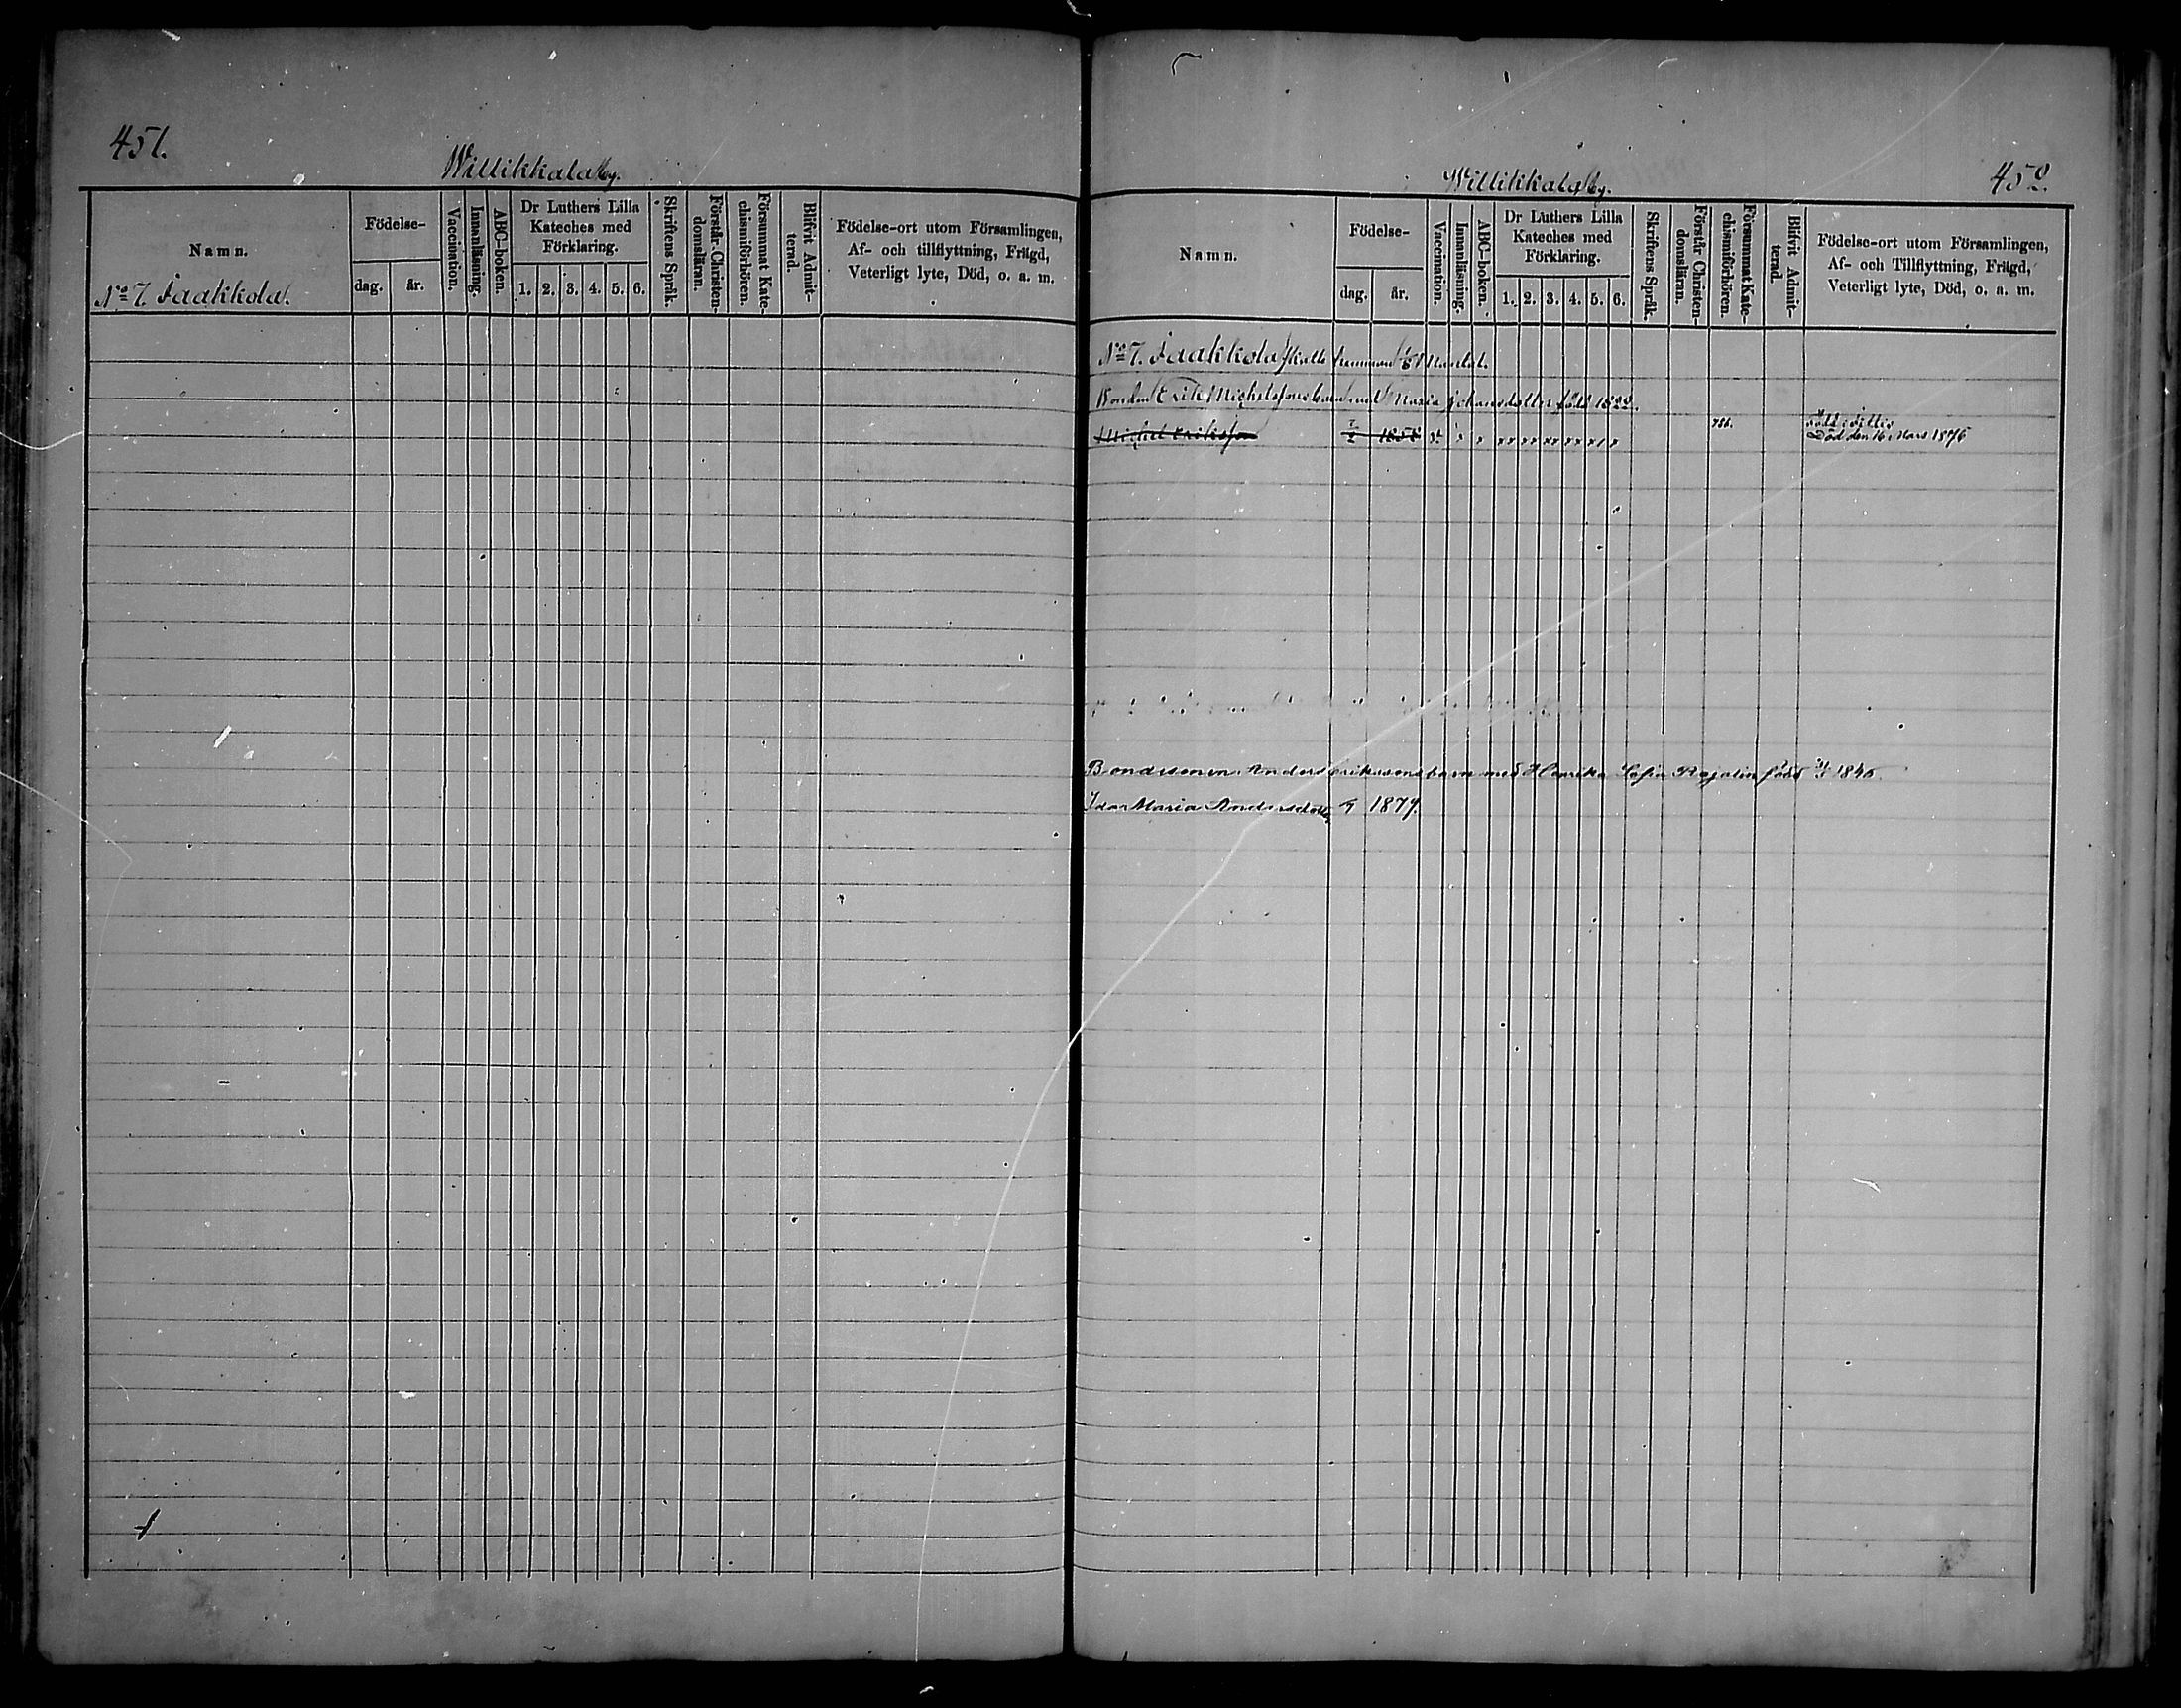 451.
Willikkala by.
Namn.
Födelse-
dag.
år.
Vaccination.
Innanläsning.
ABC-boken.
Dr Luthers Lilla
Kateches med
Förklaring.
1. 2. 3. 4. 5. 6.
Skriftens Språk.
Förstår Christen-
domsläran.
Försummat Kate-
chismiförhören.
Blifvit Admit-
terad.
Födelse-ort utom Församlingen,
Af- och tillflyttning, Frägd,
Veterligt lyte, Död, o. a. m.
No 7. Jaakkola.
452.
Willikkala by.
Namn.
Födelse-
dag.
år.
Vaccination.
Innanläsning.
ABC-boken.
Dr Luthers Lilla
Kateches med
Förklaring.
1. 2. 3. 4. 5. 6.
Skriftens Språk.
Förstår Christen-
domsläran.
Försummat Kate-
chismiförhören.
Blifvit Admit-
terad.
Födelse-ort utom Församlingen,
Af- och Tillflyttning, Frägd,
Veterligt lyte, Död, o. a. m.
No 7. Jaakkola Skatte hemman Mantal.
Bonden Erik Michelssons barn med Maria Johansdotter född 1822.
Michel Eriksson 1858 född i
Död den 16 Mars 1876
Bondesonen Anders Erikssons barn med Henrika Sofia född 1845.
Ida Maria Andersdotter 1879.